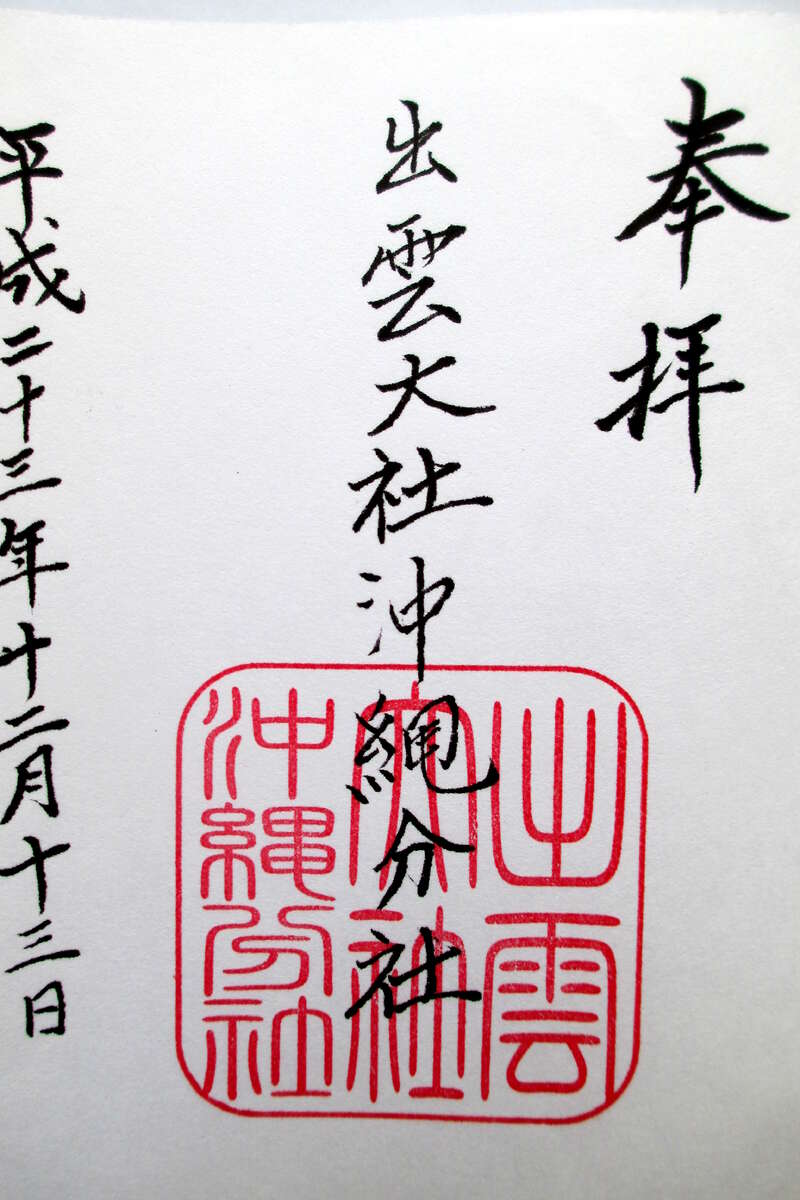 奉拝
出雲大社沖縄分社
平成二十三年十二月十三日
出雲
大社
沖縄分社